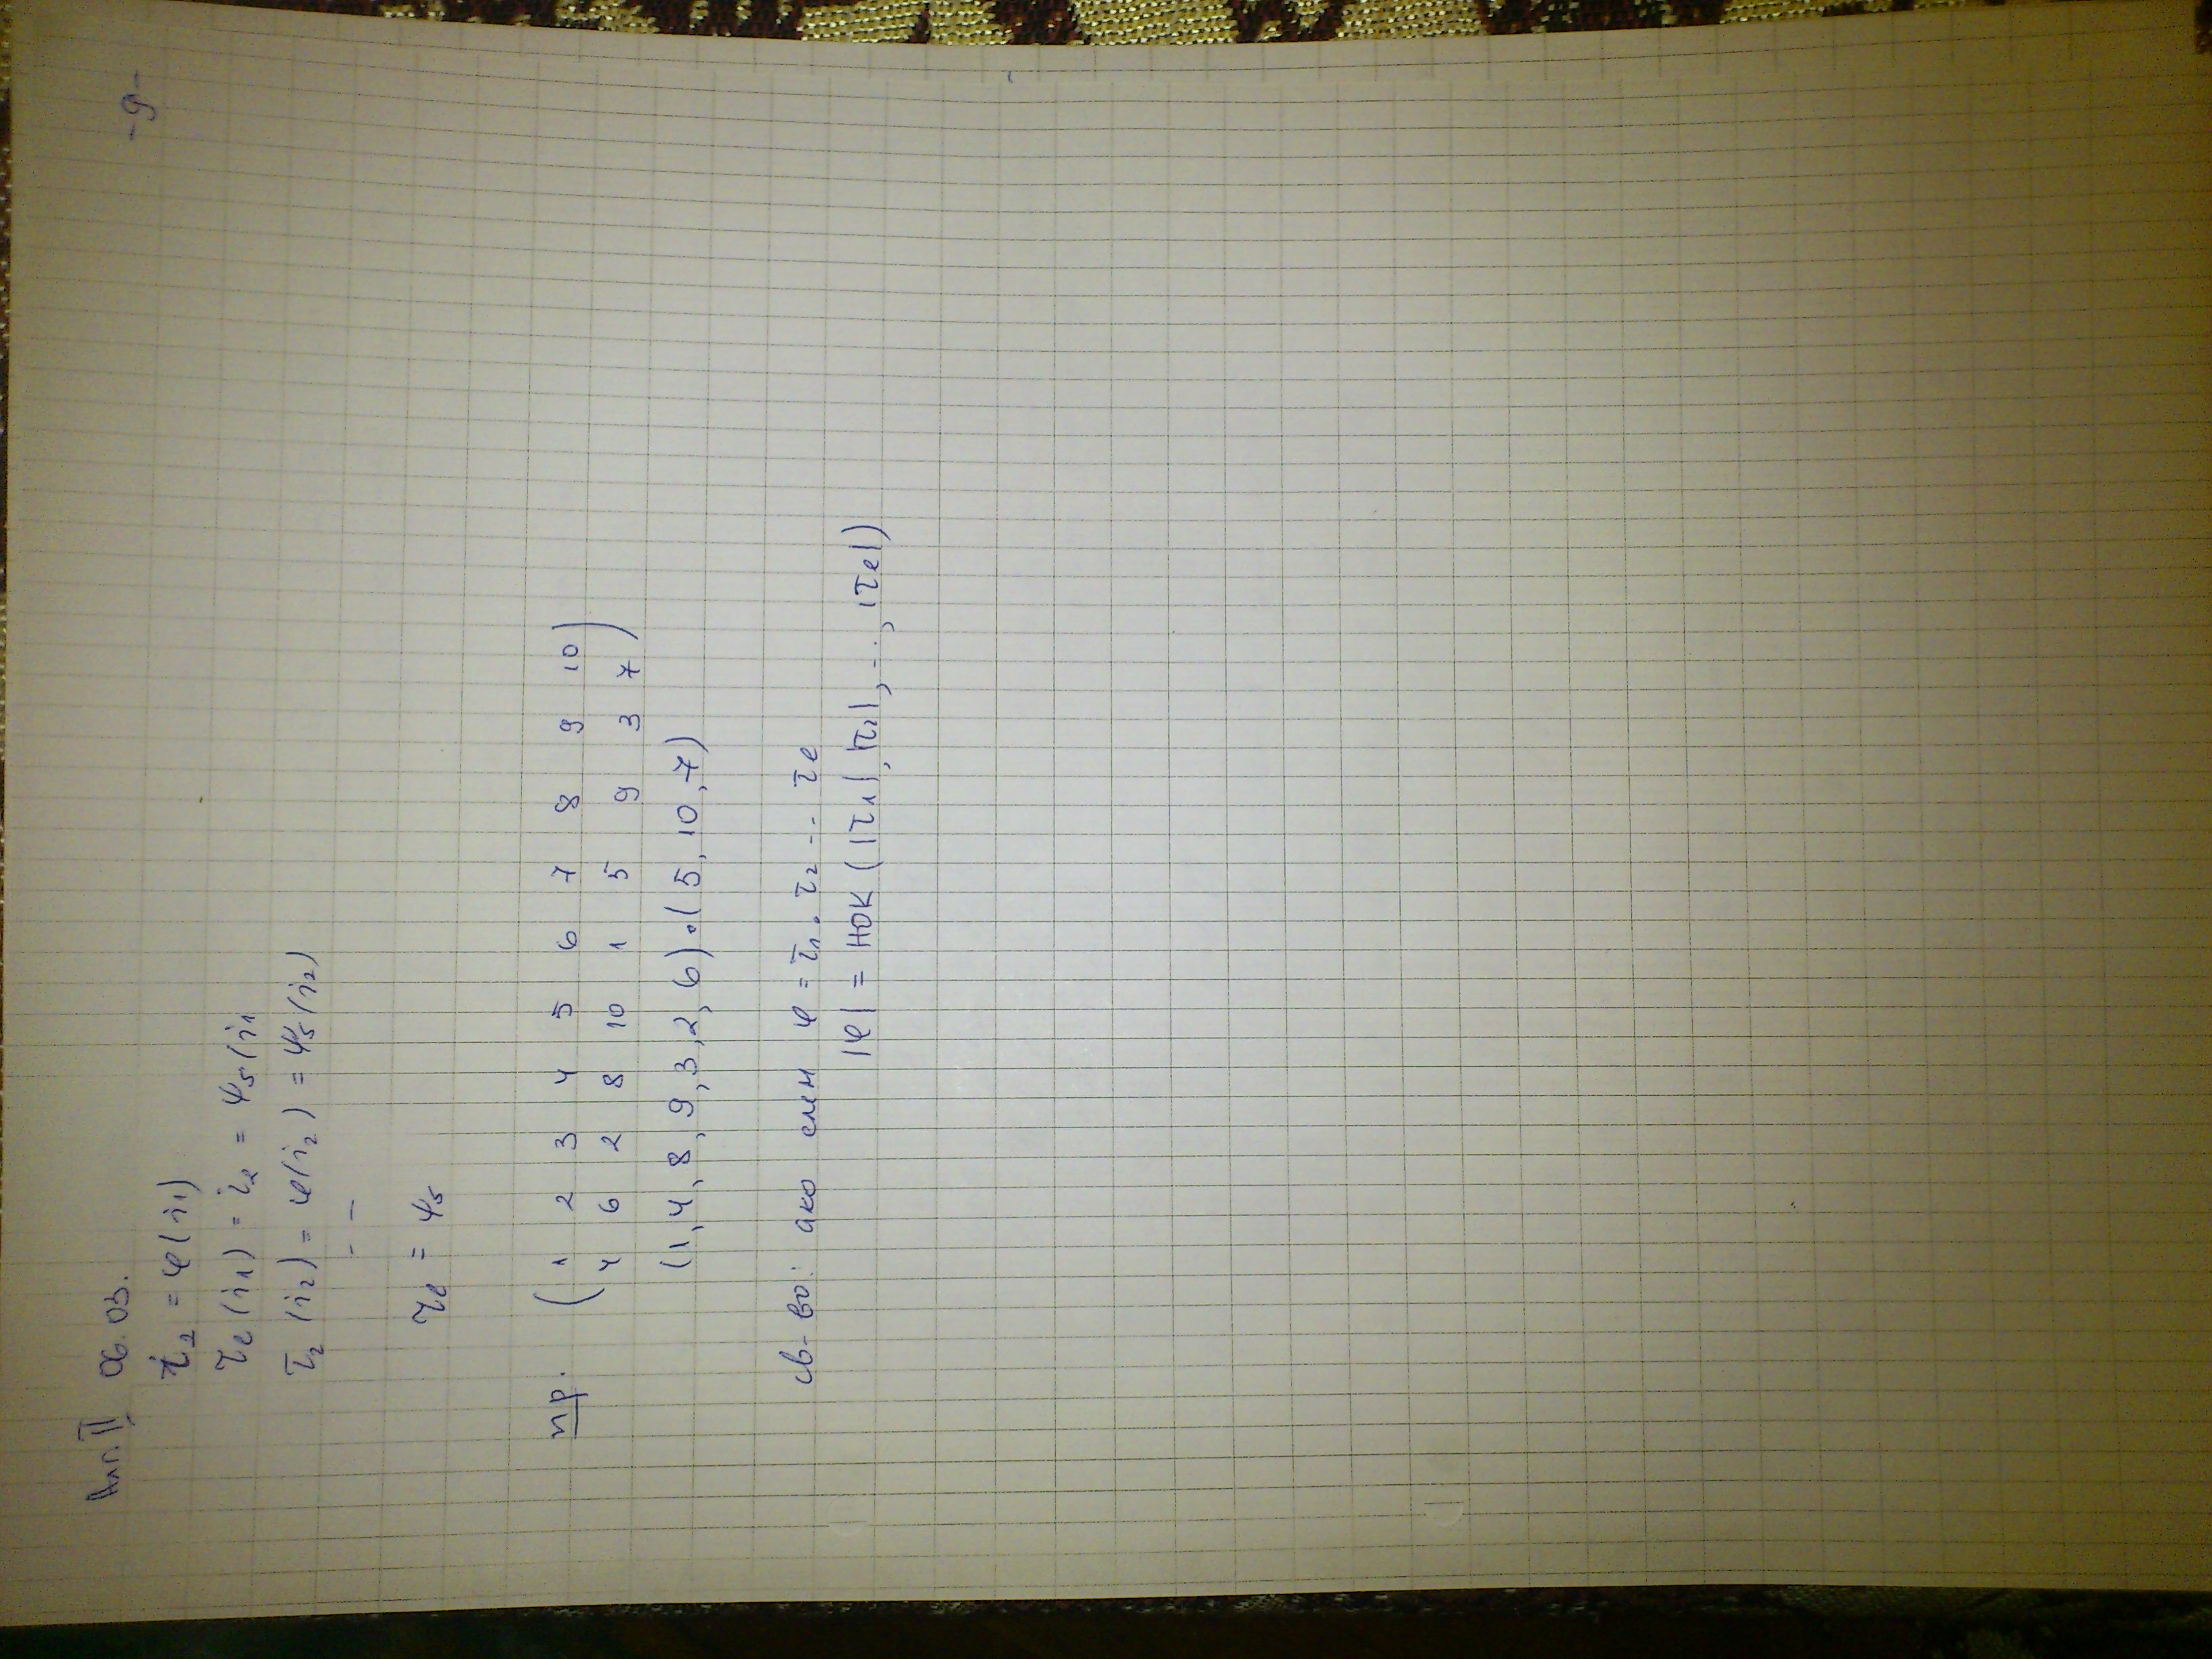 -9-
II 06.03.
i₂ = φ(i₁)
τₑ(i₁) = i₂ = ψ₅(i₁
τ₂(i₂) = φ(i₂) = ψ₅(i₂)
- —
τₑ = ψ₅
пр. ( 1 2 3 4 5 6 7 8 9 10 )
4 6 2 8 10 1 5 9 3 7
(1,4,8,9,3,2,6).(5,10,7)
св-во: ако φ = τ₁.τ₂ ... τₑ
|φ| = НОК (|τ₁|,|τ₂|,...,|τₑ|)